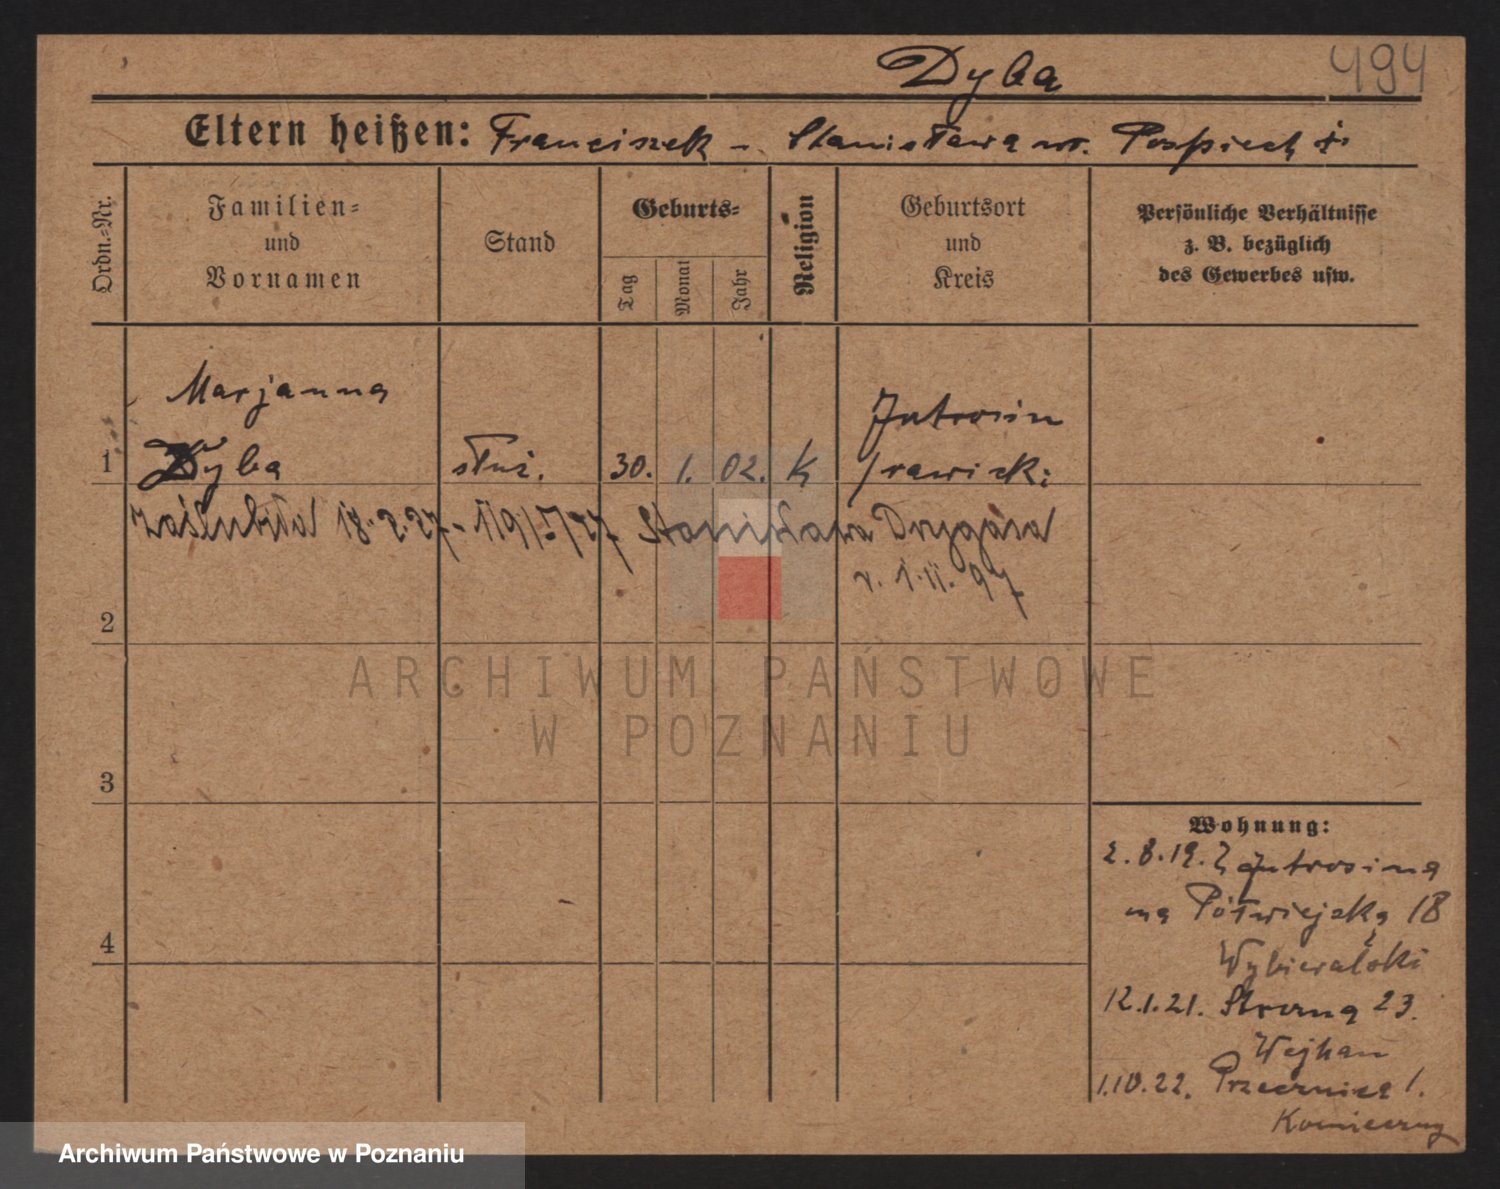 Dyba
494
Eltern heißen: Franciszek - Stanisława ur. Pospiech +
Ordn.-Nr.
Familien-
und
Vornamen
Stand
Geburts-
Tag
Monat
Jahr
Religion
Geburtsort
und
Kreis
Persönliche Verhältnisse
z. B. bezüglich
des Gewerbes usw.
Marjanna
Jutrosin
1 Dyba służ. 30. 1. 02. K /rawicki
zaślubiła 18.8.27 - Stanisława
2
ARCHIWUM PAŃSTWOWE
W POZNANIU
3
Wohnung:
2.8.19. Z Jutrosina
na Półwiejską 18
4
12.1.21. Strzana 23.
Wejhan
1.10.22. Przecznica 1.
Archiwum Państwowe w Poznaniu